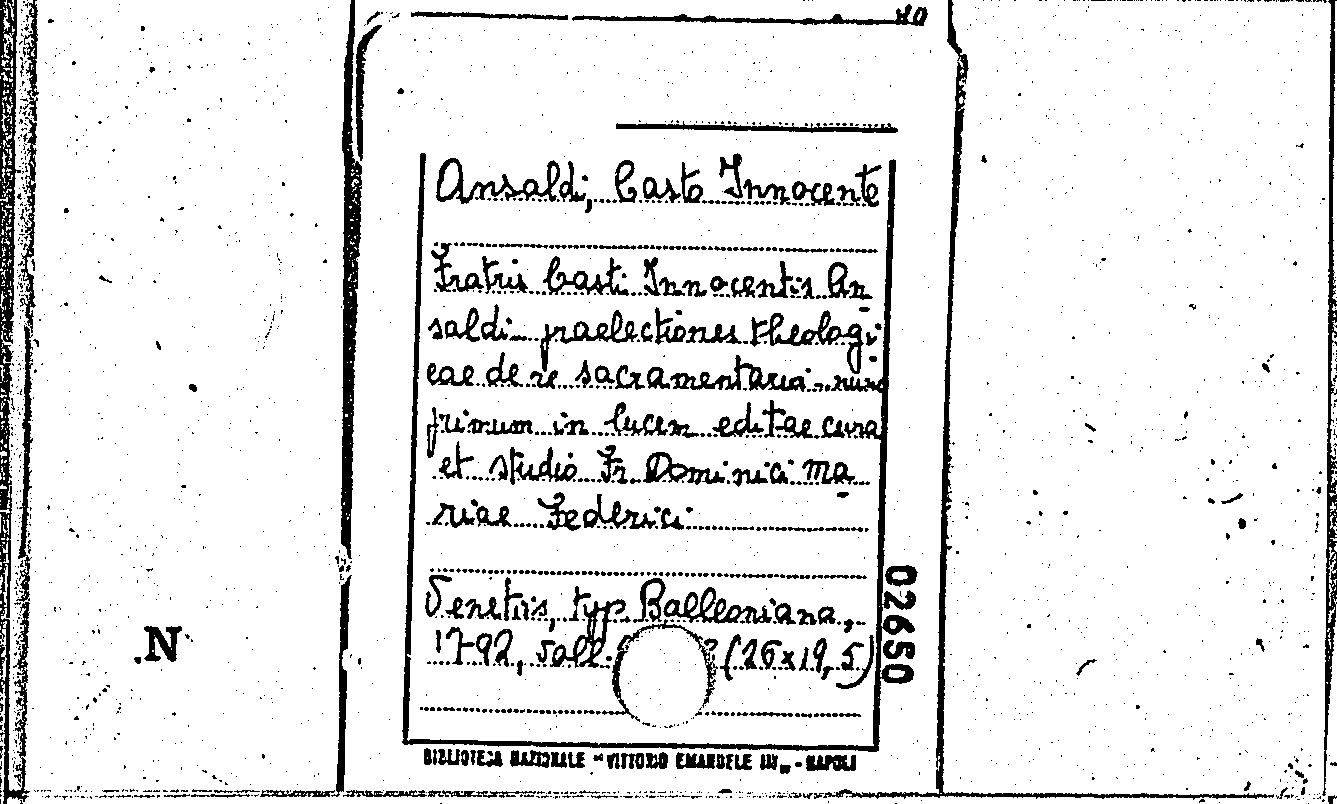 Ansaldi, Casto Innocente
Fratris Casti Innocentis An
saldi praelectiones theologi
cae de re sacramentaria.. nunc
primum in lucem editae cura
et studio Fr. Dominici Ma
riae Federici
Venetiis, typ. Balleoniana,
1792, (26x19,5)
02650
.N
BIBLIOTECA NAZIONALE "VITTORIO EMANUELE III" - NAPOLI